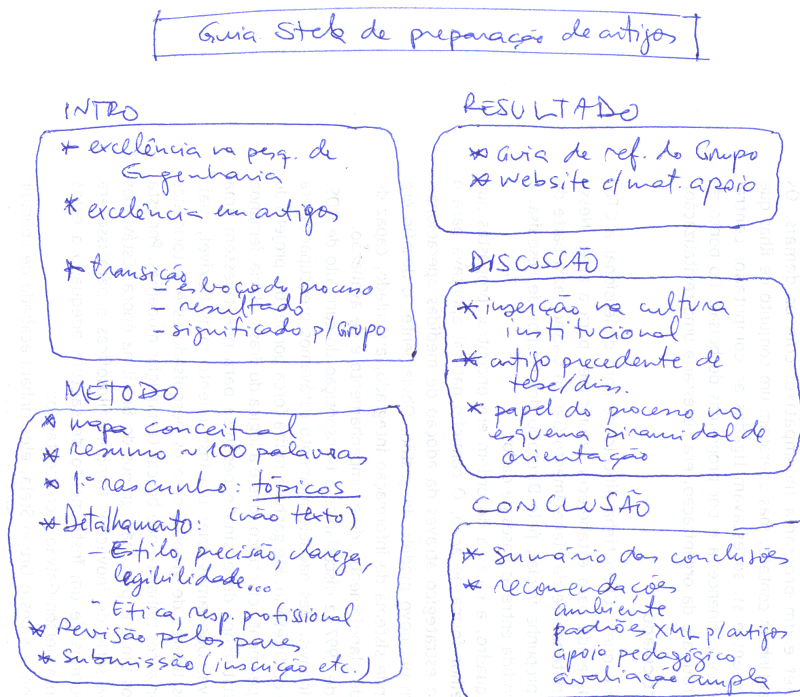 Guia Stela de preparação de artigos
INTRO
* excelência na pesq. de
Engenharia
* excelência em artigos
* transição
- esboço do processo
- resultado
- significado p/Grupo
MÉTODO
* mapa conceitual
* resumo ~ 100 palavras
* 1º rascunho: tópicos
(não texto)
* Detalhamento:
- Estilo, precisão, clareza,
legibilidade...
- Ética, resp. profissional
* Revisão pelos pares
* Submissão (inscrição etc.)
RESULTADO
* Guia de ref. do Grupo
* website c/mat. apoio
DISCUSSÃO
* inserção na cultura
institucional
* artigo precedente de
tese/diss.
* papel do processo no
esquema piramidal de
orientação
CONCLUSÃO
* Sumário das conclusões
* recomendações
ambiente
padrões XML p/artigos
apoio pedagógico
avaliação ampla